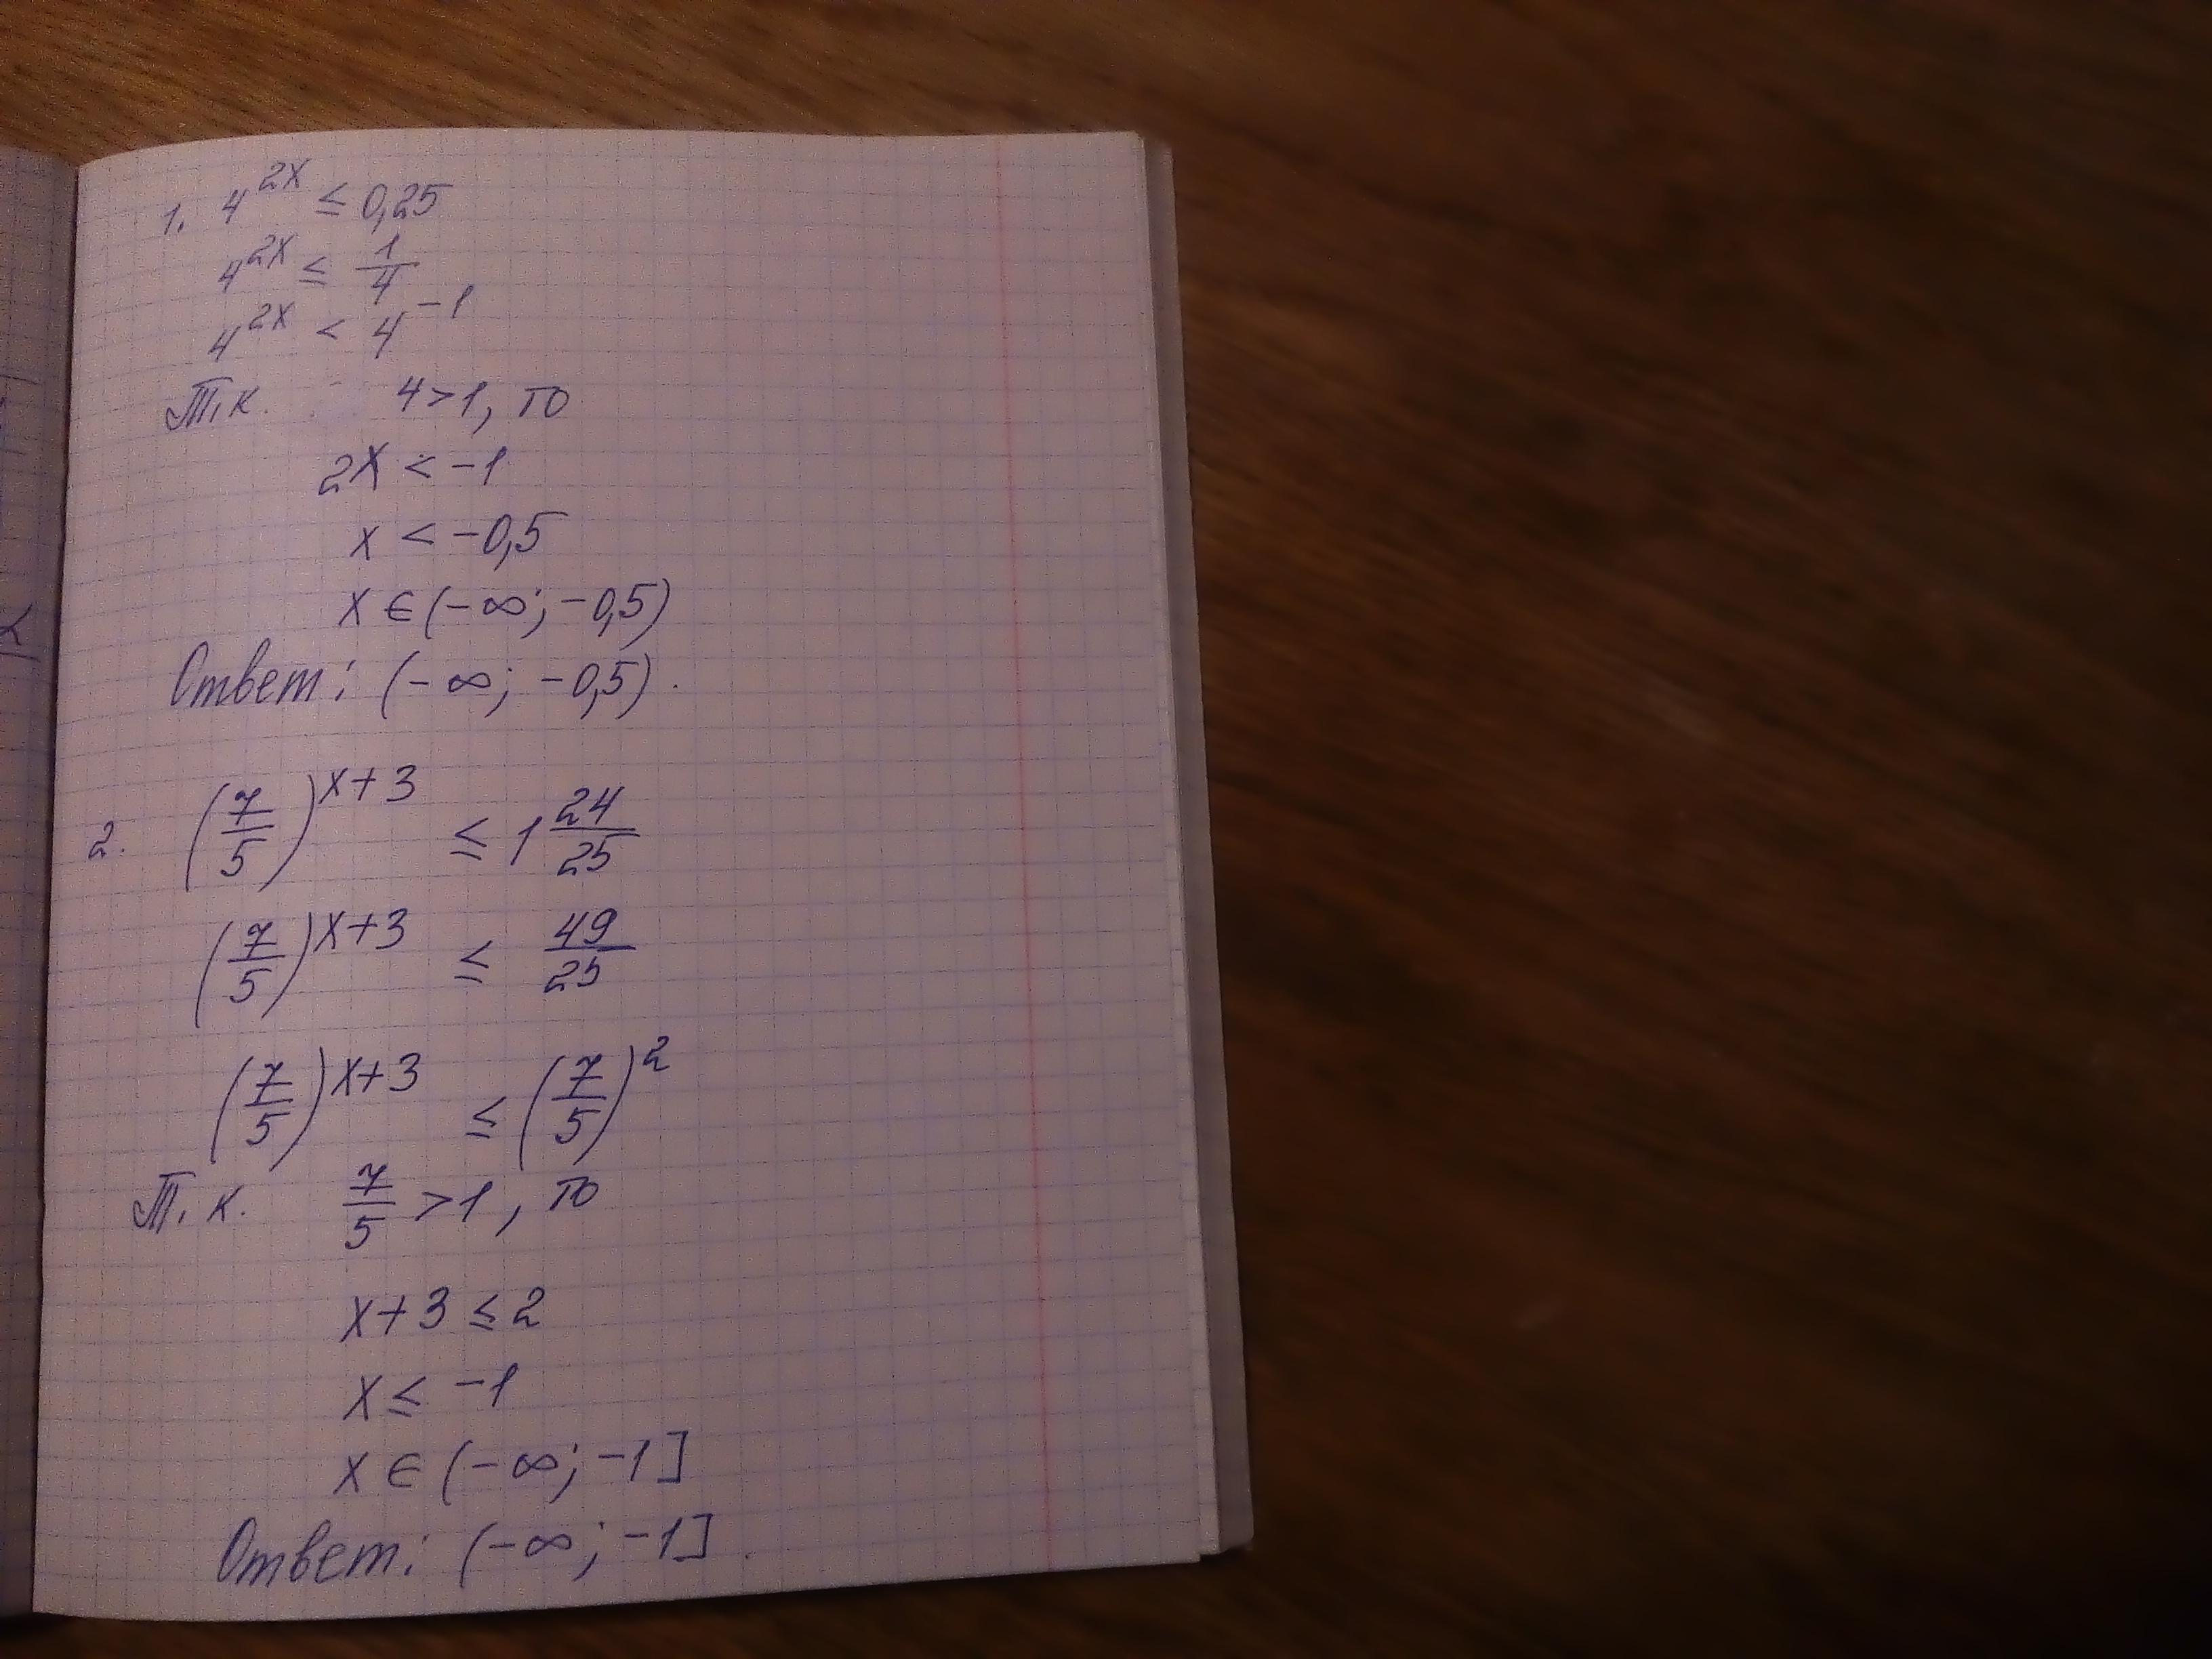 1. 4^{2x} ≤ 0,25
4^{2x} ≤ \frac{1}{4}
4^{2x} < 4^{-1}
Т.к. 4>1, то
2x < -1
x < -0,5
x ∈ (-∞; -0,5)
Ответ: (-∞; -0,5).
2. (\frac{7}{5})^{x+3} ≤ 1\frac{24}{25}
(\frac{7}{5})^{x+3} ≤ \frac{49}{25}
(\frac{7}{5})^{x+3} ≤ (\frac{7}{5})^2
Т.к. \frac{7}{5} > 1, то
x+3 ≤ 2
x ≤ -1
x ∈ (-∞; -1]
Ответ: (-∞; -1].